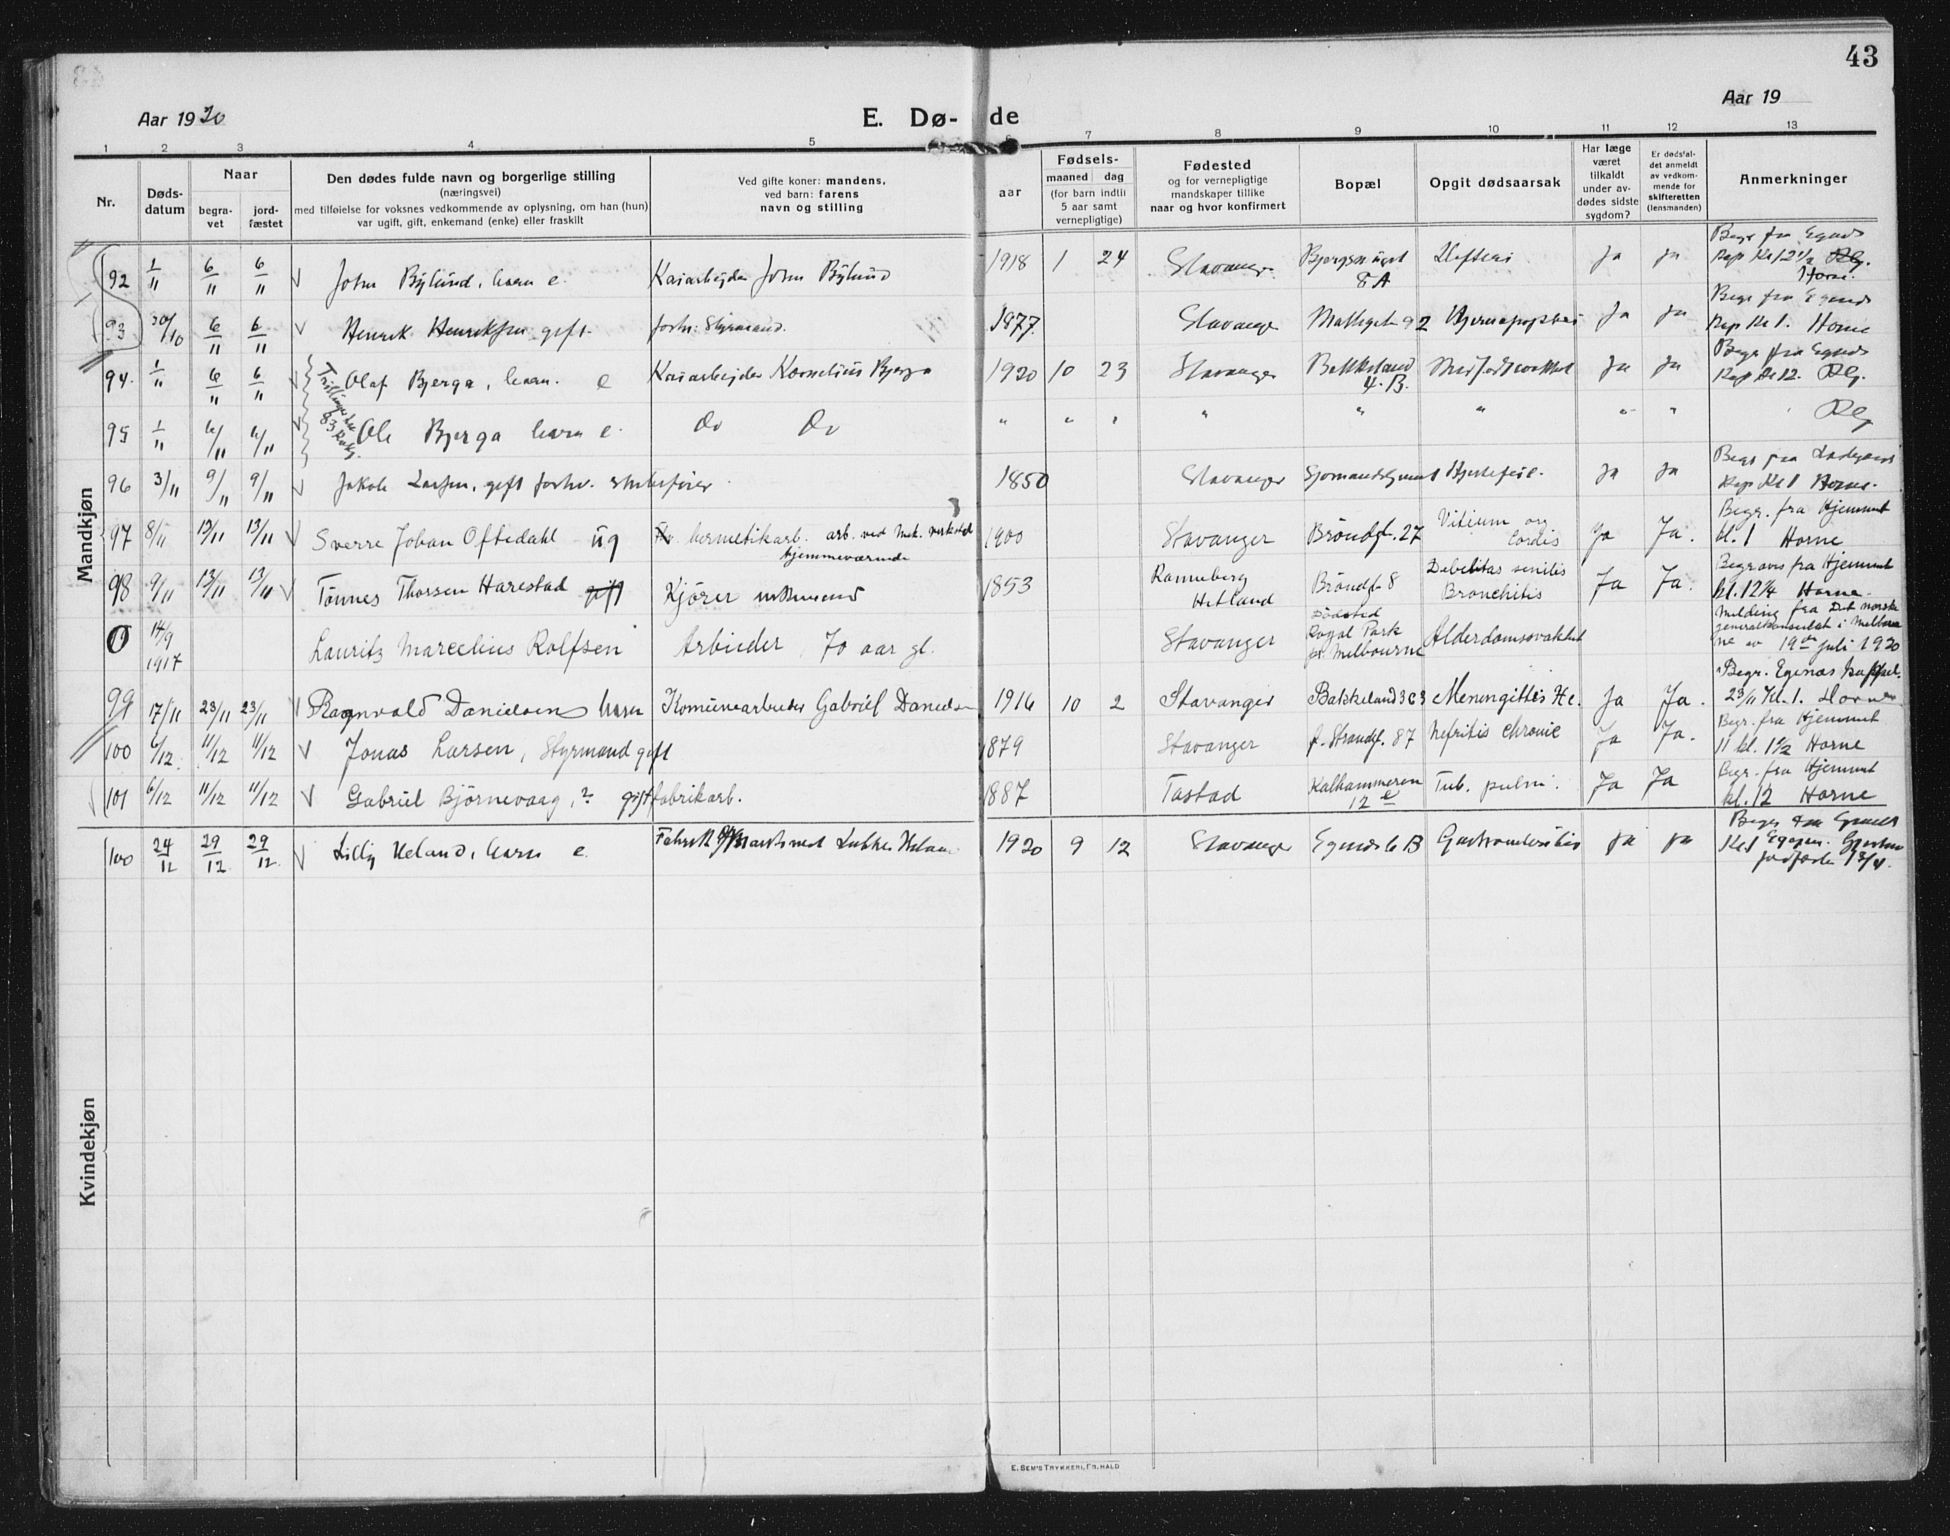 43
Aar 1920
E. Dø-de
Aar 19
1 2 3 4 5 6 7 8 9 10 11 12 13
Nr.
Døds-datum
Naar
begra-vet
jord-fæstet
Den dødes fulde navn og borgerlige stilling
(næringsvei)
med tilføielse for voksnes vedkommende av oplysning, om han (hun)
var ugift, gift, enkemand (enke) eller fraskilt
Ved gifte koner: mandens,
ved barn: farens
navn og stilling
aar
Fødsels-
maaned dag
(for barn indtil
5 aar samt
vernepligtige)
Fødested
og for vernepligtige
mandskaper tillike
naar og hvor konfirmert
Bopæl
Opgit dødsaarsak
Har læge
været
tilkaldt
under av-
dødes sidste
sygdom?
Er dødsfal-
det anmeldt
av vedkom-
mende for
skifteretten
(lensmanden)
Anmerkninger
Mandkjøn
92 1/11 6/11 6/11 John Bylund, barn e. Kaiarbejder John Bylund 1918 1 24 Stavanger 8 A Ja Ja Begr fra Egnds Kap Kl 12 1/2 Horne.
93 30/10 6/11 6/11 Henrik Henriksen gift. forhv. Styrmand. 1877. Stavanger 92 Ja Ja Begr fra Egnds Kap Kl 1. Horne
94. 1/11 6/11 6/11 Trillinger Olaf Bjerga, barn. e Kaiarbejder Kornelius Bjerga 1920 10 23 Stavanger Bakkeland 4. B. Ja Ja Begr fra Egnds Kap Kl 12.
95 1/11 6/11 6/11 Ole Bjerga barn e. Do Do " " " " " " " "
96 3/11 9/11 9/11 Jakob Larsen, gift forhv. 1850 Stavanger Hjertefeil. Ja Ja Begr fra Kap Kl 1 Horne.
97 8/11 13/11 13/11 Sverre Johan Oftedahl ug hermetikarb. arb. ved Mek. verksted hjemmeværende 1900 Stavanger Brøndgt. 27 Vitium org Cordis Ja Ja. Begr. fra Hjemmet kl. 1 Horne
98 9/11 13/11 13/11 Tønnes Thorsen Harestad gift Kjører 1853 Ranneberg Hetland Brøndgt 8 Debelitas senilis Bronchitis Ja Ja. Begraves fra Hjemmet kl. 12 1/4 Horne.
0 14/9 1917 Lauritz Marcelius Rolfsen Arbieder, 70 aar gl. Stavanger Dødsted Royal Park pr. Melbourne Alderdomssvakhet Melding fra Det norske generalkonsulat i Melbourne av 19de juli 1920
99 17/11 23/11 23/11 Ragnvald Danielsen barn Komunearbeider Gabriel Danielsen 1916 10 2 Stavanger Bakkeland 363 Menengittis Ja Ja. Begr. Egenæs kappel. 23/11 Kl. 1. Horne
100 6/12. 11/12 11/12 Jonas Larsen, Styrmand gift 1879 Stavanger St. Strandgt. 87 Nefritis chronic Ja Ja. Begr. fra Hjemmet kl. 1 1/2 Horne
101 6/12 11/12 11/12 Gabriel Bjørnevaag, gift fabrikarb. 1887 Tastad Kalhammeren 12 e Tub. pulm. Ja Ja Begr. fra Hjemmet kl. 12 Horne
Kvindekjøn
100 24/12 29/12 29/12. Lilly Heland, barn e. 1920 9 12 Stavanger Egnds 6 B Ja Ja Begr fra Kl 1
E. SEM'S TRYKKERI, FR.HALD